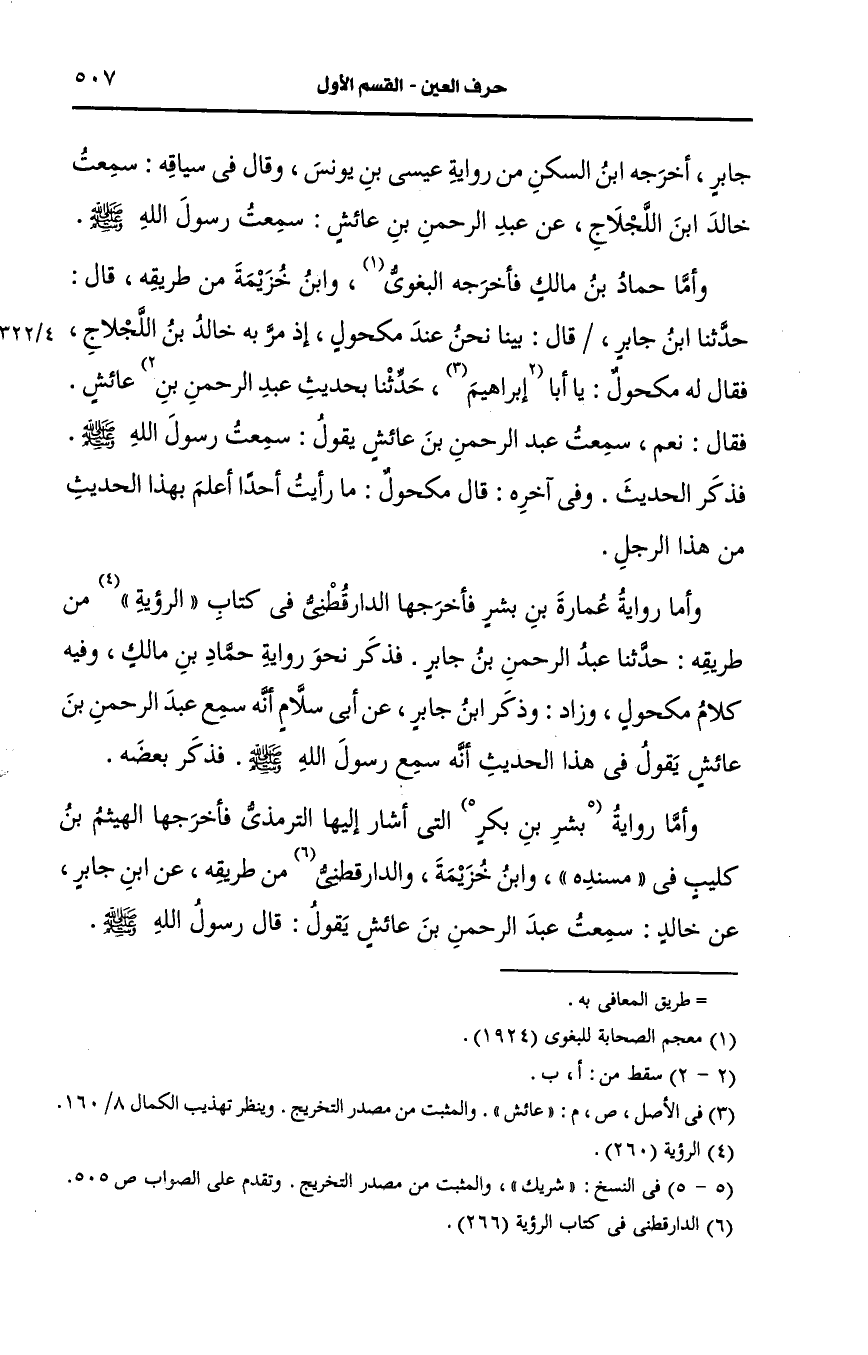 حرف العين - القسم الأول ٥٠٧
جابرٍ ، أخرَجه ابنُ السكنِ من روايةِ عيسى بنِ يونسَ ، وقال فى سياقِه : سمِعتُ
خالدَ ابنَ اللَّجْلَاجِ ، عن عبدِ الرحمنِ بنِ عائشٍ : سمِعتُ رسولَ اللهِ ﷺ .
وأمَّا حمادُ بنُ مالكٍ فأخرَجه البغوىُّ(١) ، وابنُ خُزَيْمَةَ من طريقِه ، قال :
حدَّثنا ابنُ جابرٍ ، / قال : بينا نحنُ عندَ مكحولٍ ، إذ مرَّ به خالدُ بنُ اللَّجْلاجِ ، ٣٢٢/٤
فقال له مكحولٌ : يا أبا (٢إبراهيمَ(٣) ، حَدِّثْنا بحديثِ عبدِ الرحمنِ بنِ٢) عائشٍ .
فقال : نعم ، سمِعتُ عبد الرحمنِ بنَ عائشٍ يقولُ : سمِعتُ رسولَ اللهِ ﷺ .
فذكَر الحديثَ . وفى آخرِه : قال مكحولٌ : ما رأيتُ أحدًا أعلمَ بهذا الحديثِ
من هذا الرجلِ .
وأما روايةُ عُمارةَ بنِ بشرٍ فأخرَجها الدارقُطْنِىُّ فى كتابِ « الرؤيةِ »(٤) من
طريقِه : حدَّثنا عبدُ الرحمنِ بنُ جابرٍ . فذكَر نحوَ روايةِ حمَّادِ بنِ مالكٍ ، وفيه
كلامُ مكحولٍ ، وزاد : وذكَر ابنُ جابرٍ ، عن أبى سلَّامٍ أنَّه سمِع عبدَ الرحمنِ بنَ
عائشٍ يَقولُ فى هذا الحديثِ أنَّه سمِع رسولَ اللهِ ﷺ . فذكَر بعضَه .
وأمَّا روايةُ (٥بشرِ بنِ بكرٍ٥) التى أشار إليها الترمذىُّ فأخرَجها الهيثمُ بنُ
كليبٍ فى « مسندِه » ، وابنُ خُزَيْمَةَ ، والدارقطنِىُّ(٦) من طريقِه ، عن ابنِ جابرٍ ،
عن خالدٍ : سمِعتُ عبدَ الرحمنِ بنَ عائشٍ يَقولُ : قال رسولُ اللهِ ﷺ .
= طريق المعافى به .
(١) معجم الصحابة للبغوى (١٩٢٤) .
(٢ - ٢) سقط من : أ ، ب .
(٣) فى الأصل ، ص ، م : « عائش » . والمثبت من مصدر التخريج . وينظر تهذيب الكمال ٨/ ١٦٠.
(٤) الرؤية (٢٦٠) .
(٥ - ٥) فى النسخ : « شريك » ، والمثبت من مصدر التخريج . وتقدم على الصواب ص ٥٠٥.
(٦) الدارقطنى فى كتاب الرؤية (٢٦٦) .